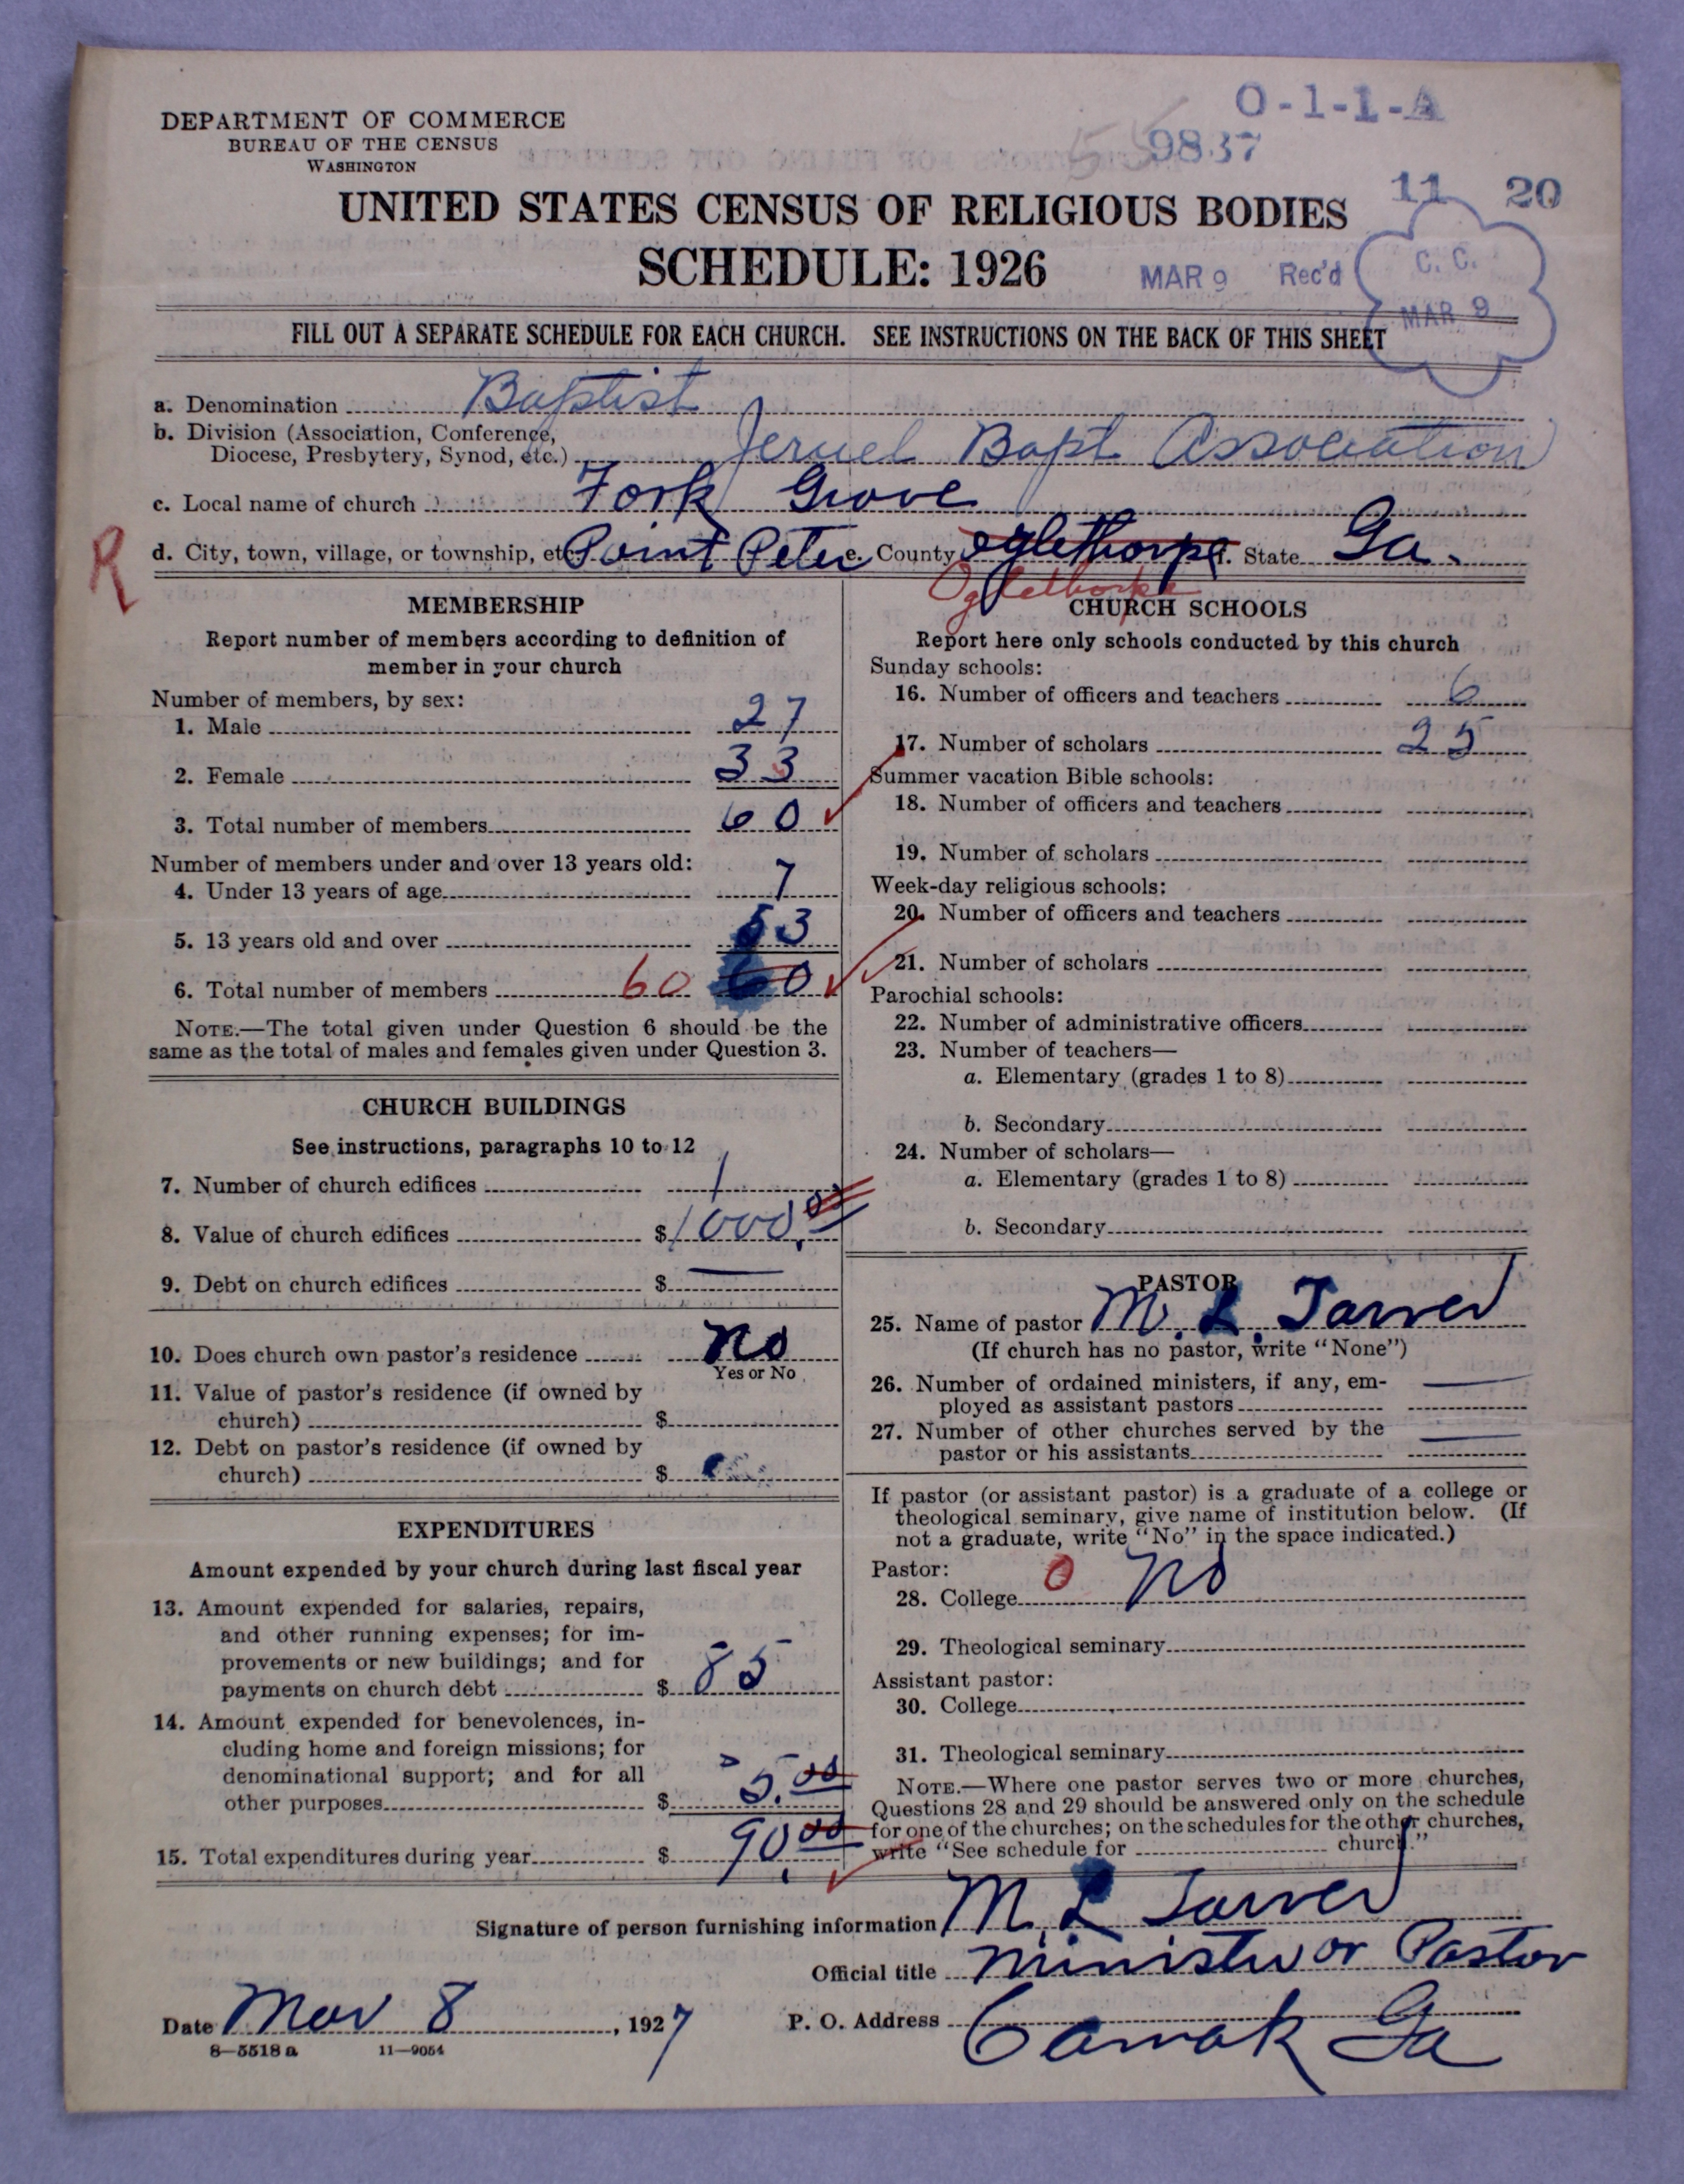 O-1-1-A
DEPARTMENT OF COMMERCE
BUREAU OF THE CENSUS
WASHINGTON
9837
11 20
UNITED STATES CENSUS OF RELIGIOUS BODIES
SCHEDULE: 1926
MAR 9 Rec'd
C. C.
MAR 9
FILL OUT A SEPARATE SCHEDULE FOR EACH CHURCH. SEE INSTRUCTIONS ON THE BACK OF THIS SHEET
a. Denomination Baptist
b. Division (Association, Conference,
Diocese, Presbytery, Synod, etc.) Jeruel Bapt Association
c. Local name of church Fork Grove
R
d. City, town, village, or township, etc. Point Peter e. County Oglethorpe f. State Ga.
Oglethorpe
MEMBERSHIP
Report number of members according to definition of
member in your church
Number of members, by sex:
1. Male 27
2. Female 33
3. Total number of members 60
Number of members under and over 13 years old:
4. Under 13 years of age 7
5. 13 years old and over 53
6. Total number of members 60 60
NOTE.—The total given under Question 6 should be the
same as the total of males and females given under Question 3.
CHURCH BUILDINGS
See instructions, paragraphs 10 to 12
7. Number of church edifices 1
8. Value of church edifices $ 1000.00
9. Debt on church edifices $ —
10. Does church own pastor's residence No
Yes or No
11. Value of pastor's residence (if owned by
church) $
12. Debt on pastor's residence (if owned by
church) $
EXPENDITURES
Amount expended by your church during last fiscal year
13. Amount expended for salaries, repairs,
and other running expenses; for im-
provements or new buildings; and for
payments on church debt $ 85
14. Amount expended for benevolences, in-
cluding home and foreign missions; for
denominational support; and for all
other purposes $ 5.00
15. Total expenditures during year $ 90.00
CHURCH SCHOOLS
Report here only schools conducted by this church
Sunday schools:
16. Number of officers and teachers 6
17. Number of scholars 25
Summer vacation Bible schools:
18. Number of officers and teachers
19. Number of scholars
Week-day religious schools:
20. Number of officers and teachers
21. Number of scholars
Parochial schools:
22. Number of administrative officers
23. Number of teachers—
a. Elementary (grades 1 to 8)
b. Secondary
24. Number of scholars—
a. Elementary (grades 1 to 8)
b. Secondary
PASTOR
25. Name of pastor M. L. Tarver
(If church has no pastor, write "None")
26. Number of ordained ministers, if any, em-
ployed as assistant pastors —
27. Number of other churches served by the
pastor or his assistants —
If pastor (or assistant pastor) is a graduate of a college or
theological seminary, give name of institution below. (If
not a graduate, write "No" in the space indicated.)
Pastor:
28. College 0 No
29. Theological seminary
Assistant pastor:
30. College
31. Theological seminary
NOTE.—Where one pastor serves two or more churches,
Questions 28 and 29 should be answered only on the schedule
for one of the churches; on the schedules for the other churches,
write "See schedule for church."
Signature of person furnishing information M. L Tarver
Official title Minister or Pastor
Date Mar 8, 1927
P. O. Address Camak Ga
8—5518 a 11—9054